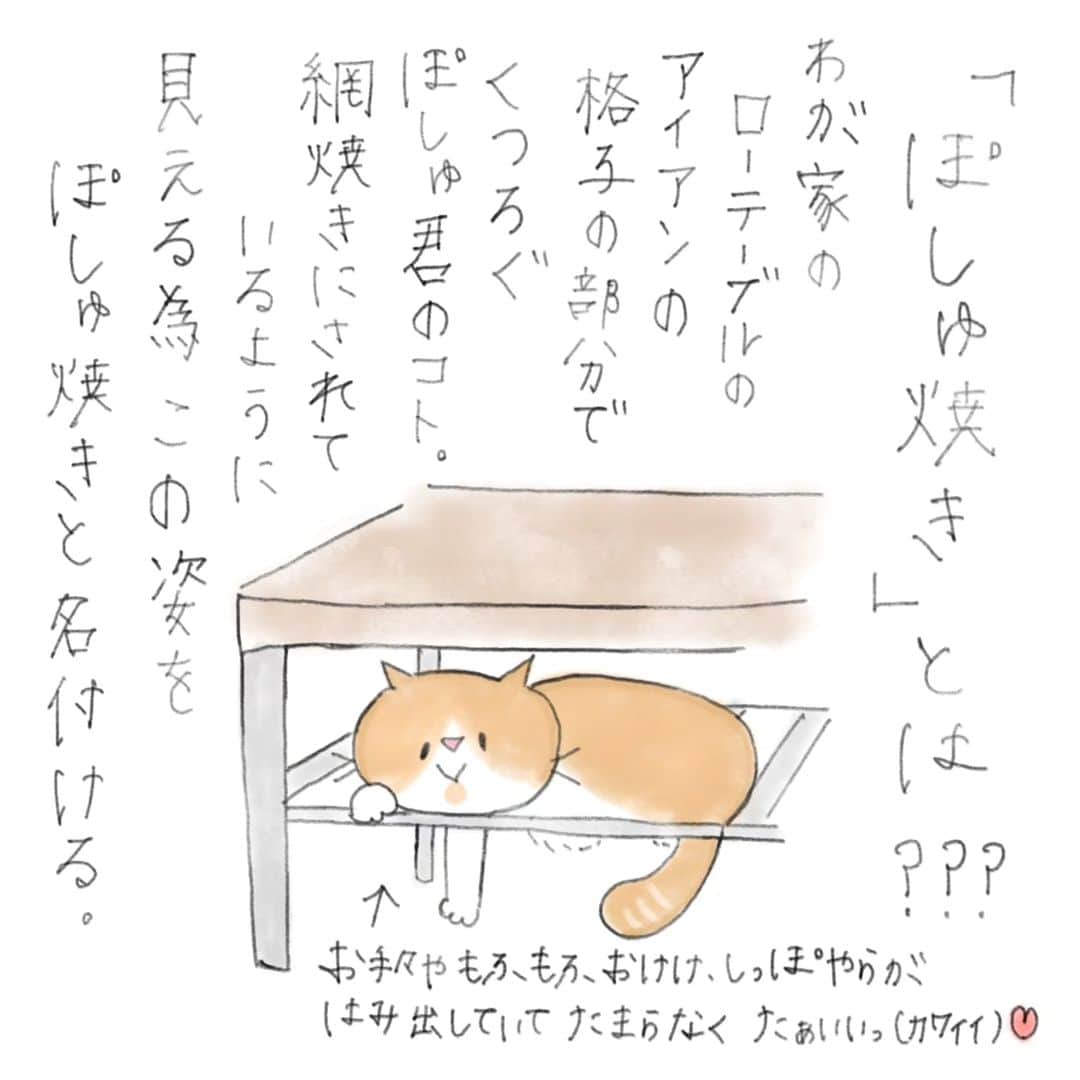 「ぽしゅ焼き」とは???
わが家の
ローテーブルの
アイアンの
格子の部分で
くつろぐ
ぽしゅ君のコト。
網焼きにされて
いるように
見える為この姿を
ぽしゅ焼きと名付ける。
↑
お手々やもふもふおけけ、しっぽやらが
はみ出していてたまらなくたぁいいっ(カワイイ)